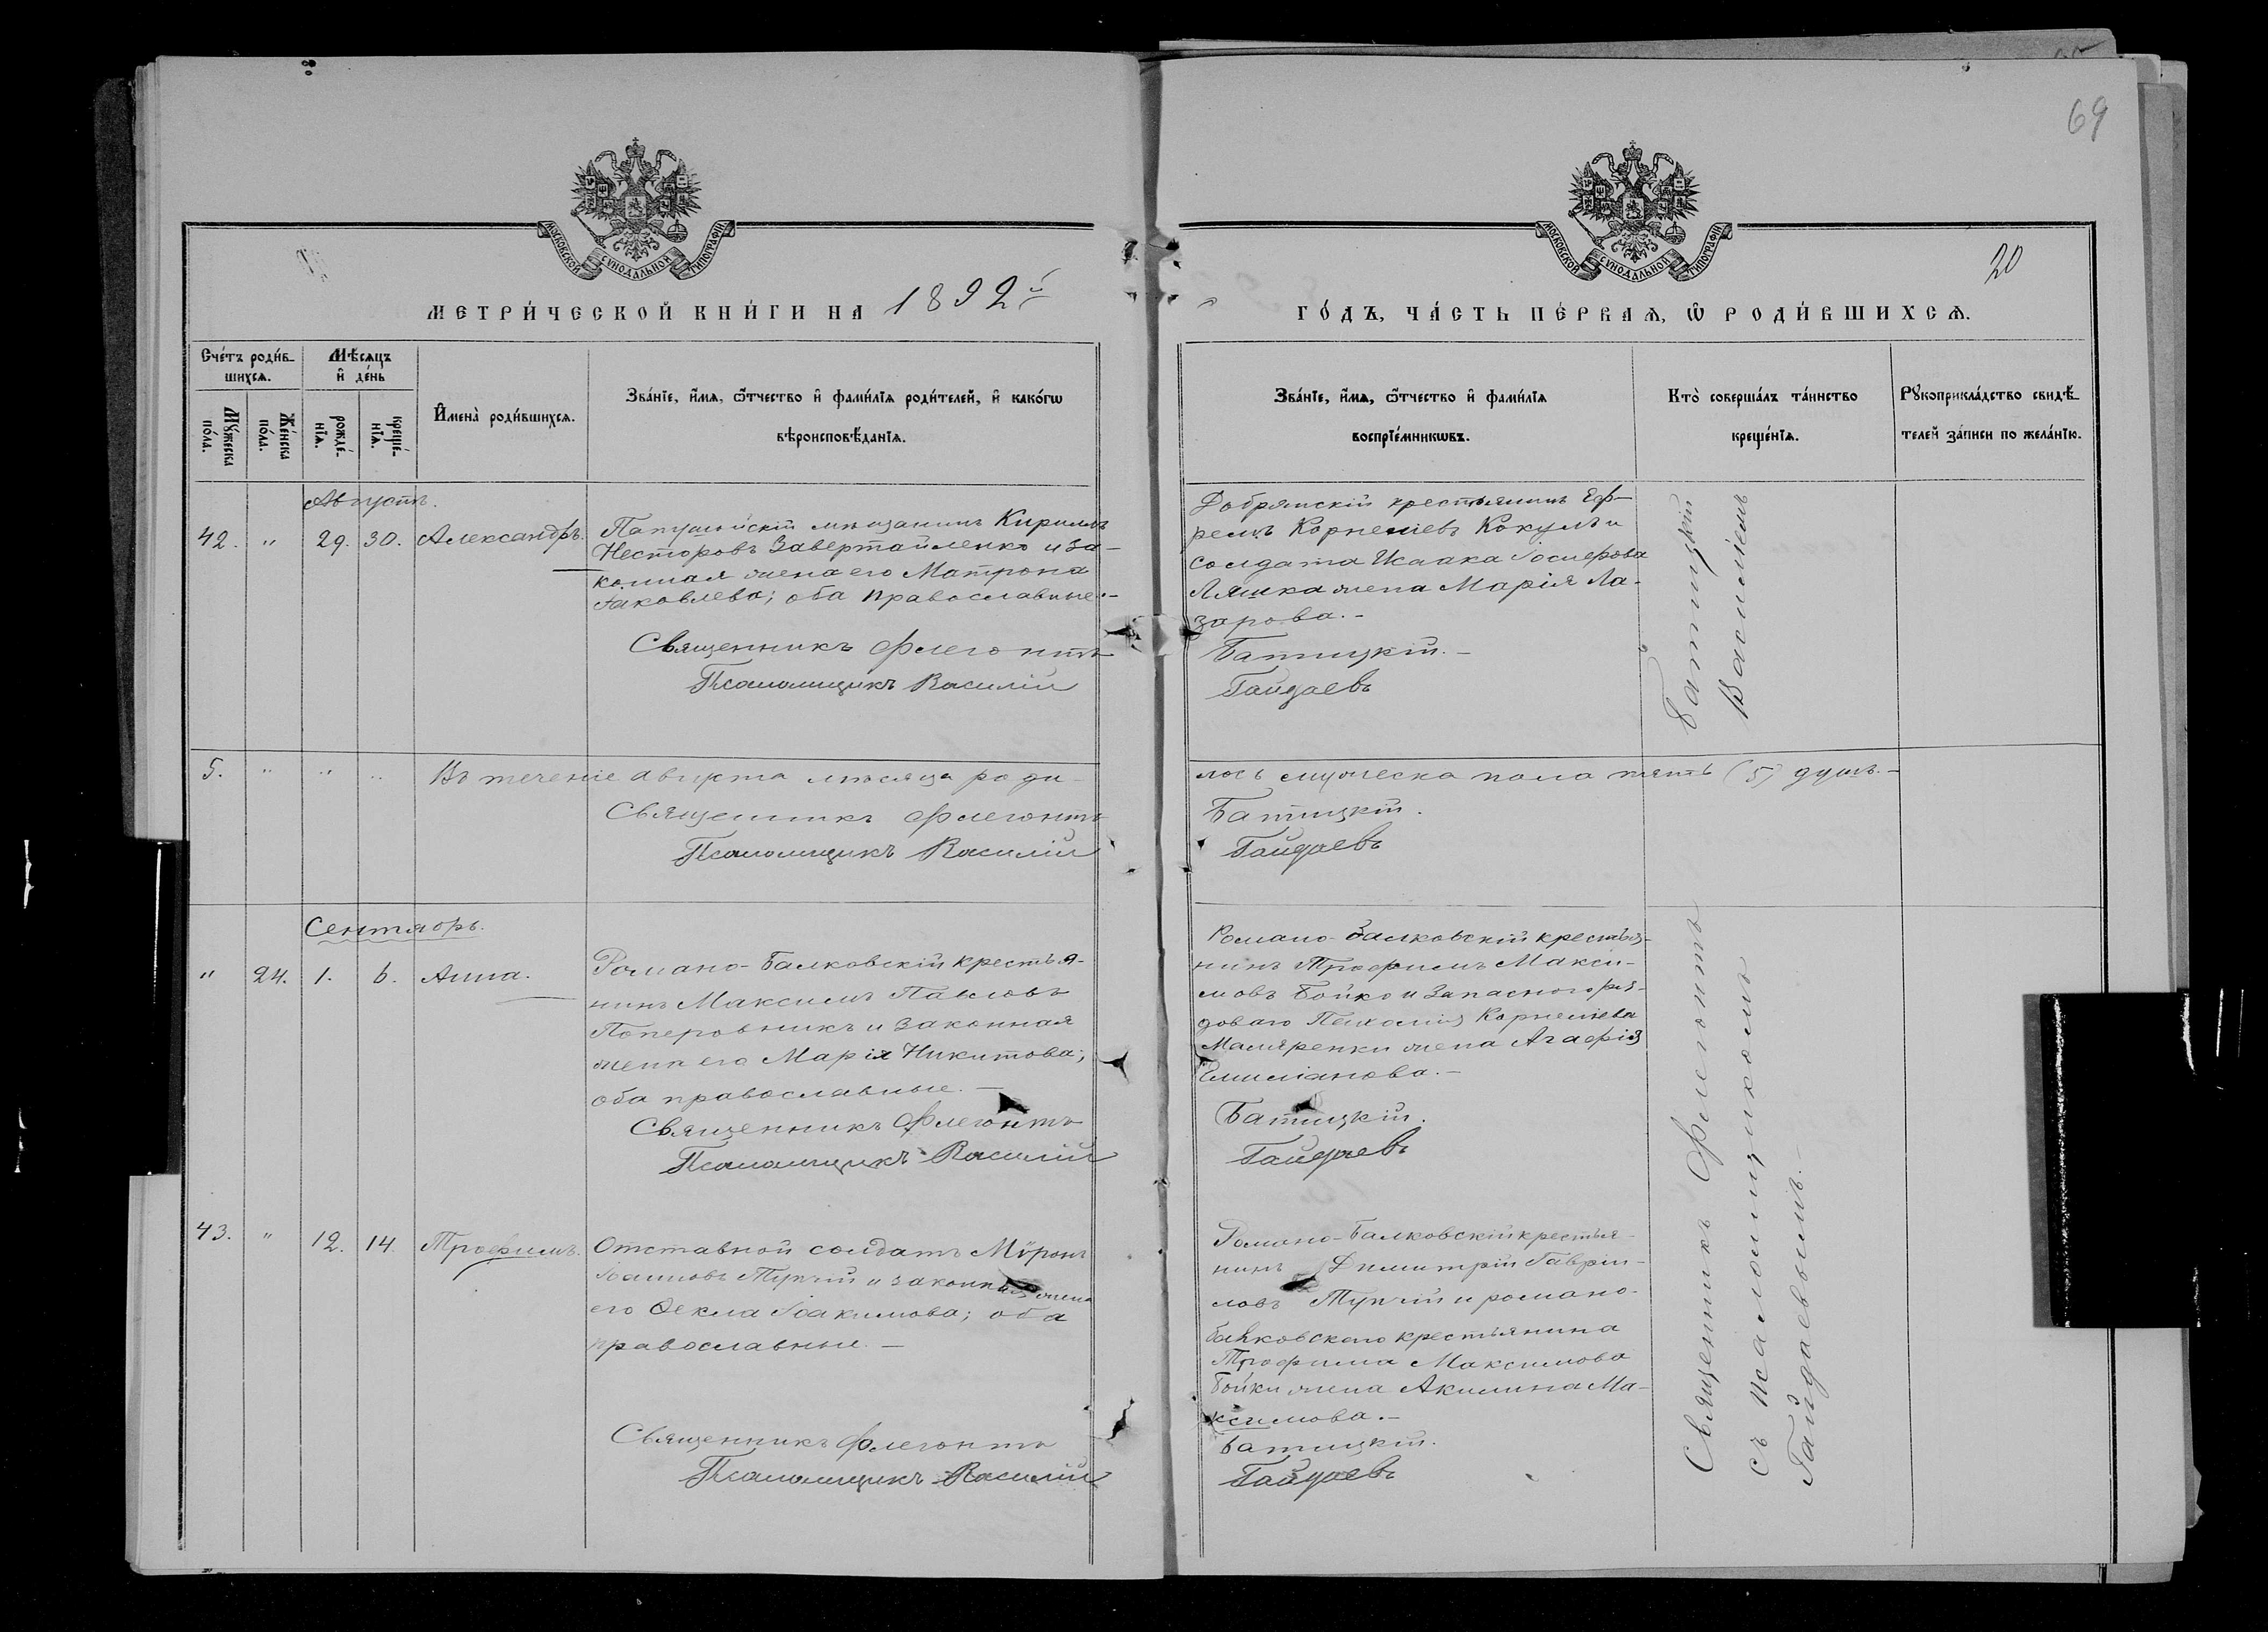 69
МОСКОВСКОЙ СѴНОДАЛЬНОЙ ТИПОГРАФІИ
МОСКОВСКОЙ СѴНОДАЛЬНОЙ ТИПОГРАФІИ
20
МЕТРИ́ЧЕСКОЙ КНИ́ГИ НА 1892 й
ГО́ДЪ, ЧА́СТЬ ПЕ́РВАѦ, Ѡ РОДИ́ВШИХСѦ.
Сче́тъ роди́в-
шихсѧ.
Мѣ́сѧцъ
и҆ де́нь
Мꙋ́жеска
по́ла.
Же́нска
по́ла.
рожде́-
нїѧ.
креще́-
нїѧ.
И҆мена̀ роди́вшихсѧ.
Зва́нїе, и҆́мѧ, ѻ҆́тчество и҆ фами́лїѧ роди́телей, и҆ како́гѡ
вѣроисповѣ́данїѧ.
Зва́нїе, и҆́мѧ, ѻ҆́тчество и҆ фами́лїѧ
воспрїе́мникѡвъ.
Кто̀ соверша́лъ та́инство
креще́нїѧ.
Рꙋкоприкла́дство свидѣ́-
телей за́писи по жела́нїю.
Августъ.
42. " 29. 30. Александръ.
Папушойскій мѣщанинъ Кириллъ
Несторовъ Завертайленко и за-
конная жена его Матрона
Іаковлева; оба православные.-
Священникъ Флегонтъ
Псаломщикъ Василій
Добрянскій крестьянинъ Еф-
ремъ Корнеліевъ Кокулъ и
солдата Исаака Іосифова
Ляшка жена Марія Ла-
зарова.-
Батицкій.-
Гайдаевъ
Батицкій
Василіемъ
5. " " " Въ теченіе августа мѣсяца роди-
лось мужеска пола пять (5) душъ.-
Священникъ Флегонтъ
Псаломщикъ Василій
Батицкій.
Гайдаевъ
Сентябрь.
" 24. 1. 6. Анна.
Романо-Балковскій крестья-
нинъ Максимъ Павловъ
Поперовникъ и законная
жена его Марія Никитова;
оба православные.-
Священникъ Флегонтъ
Псаломщикъ Василій
Романо-Балковскій крестья-
нинъ Трофимъ Макси-
мовъ Бойко и запасного ря-
доваго Корнеліева
Маляренки жена Агафія
Емиліанова.-
Батицкій.
Гайдаевъ
43. " 12. 14. Трофимъ.
Отставной солдатъ Мѵронъ
Іоанновъ Тупчій и законная жена
его Ѳекла Іоакимова; оба
православные.-
Священникъ Флегонтъ
Псаломщикъ Василій
Романо-Балковскій крестья-
нинъ Димитрій Гаврии-
ловъ Тупчій и романо-
балковского крестьянина
Трофима Максимова
Бойки жена Акилина Ма-
ксимова.-
Батицкій.
Гайдаевъ
Священникъ Флегонтъ
съ псаломщикомъ
Гайдаевымъ.-